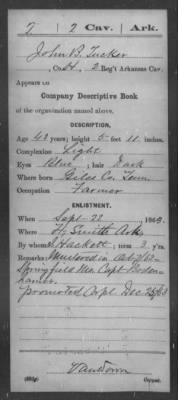 T | 2 | Cav. | Ark.
John B. Tucker
Co. H, 2 Reg't Arkansas Cav.
Appears on
Company Descriptive Book
of the organization named above.
DESCRIPTION.
Age 43 years; height 5 feet 11 inches.
Complexion Light
Eyes Blue; hair Dark
Where born Giles Co. Tenn.
Occupation Farmer
ENLISTMENT.
When Sept 22, 1863.
Where Ft Smith Ark
By whom Hackett; term 3 y'rs.
Remarks: Mustered in Oct 2/63
Springfield Mo. Capt
promoted Corpl Dec 25/63
Copyist.